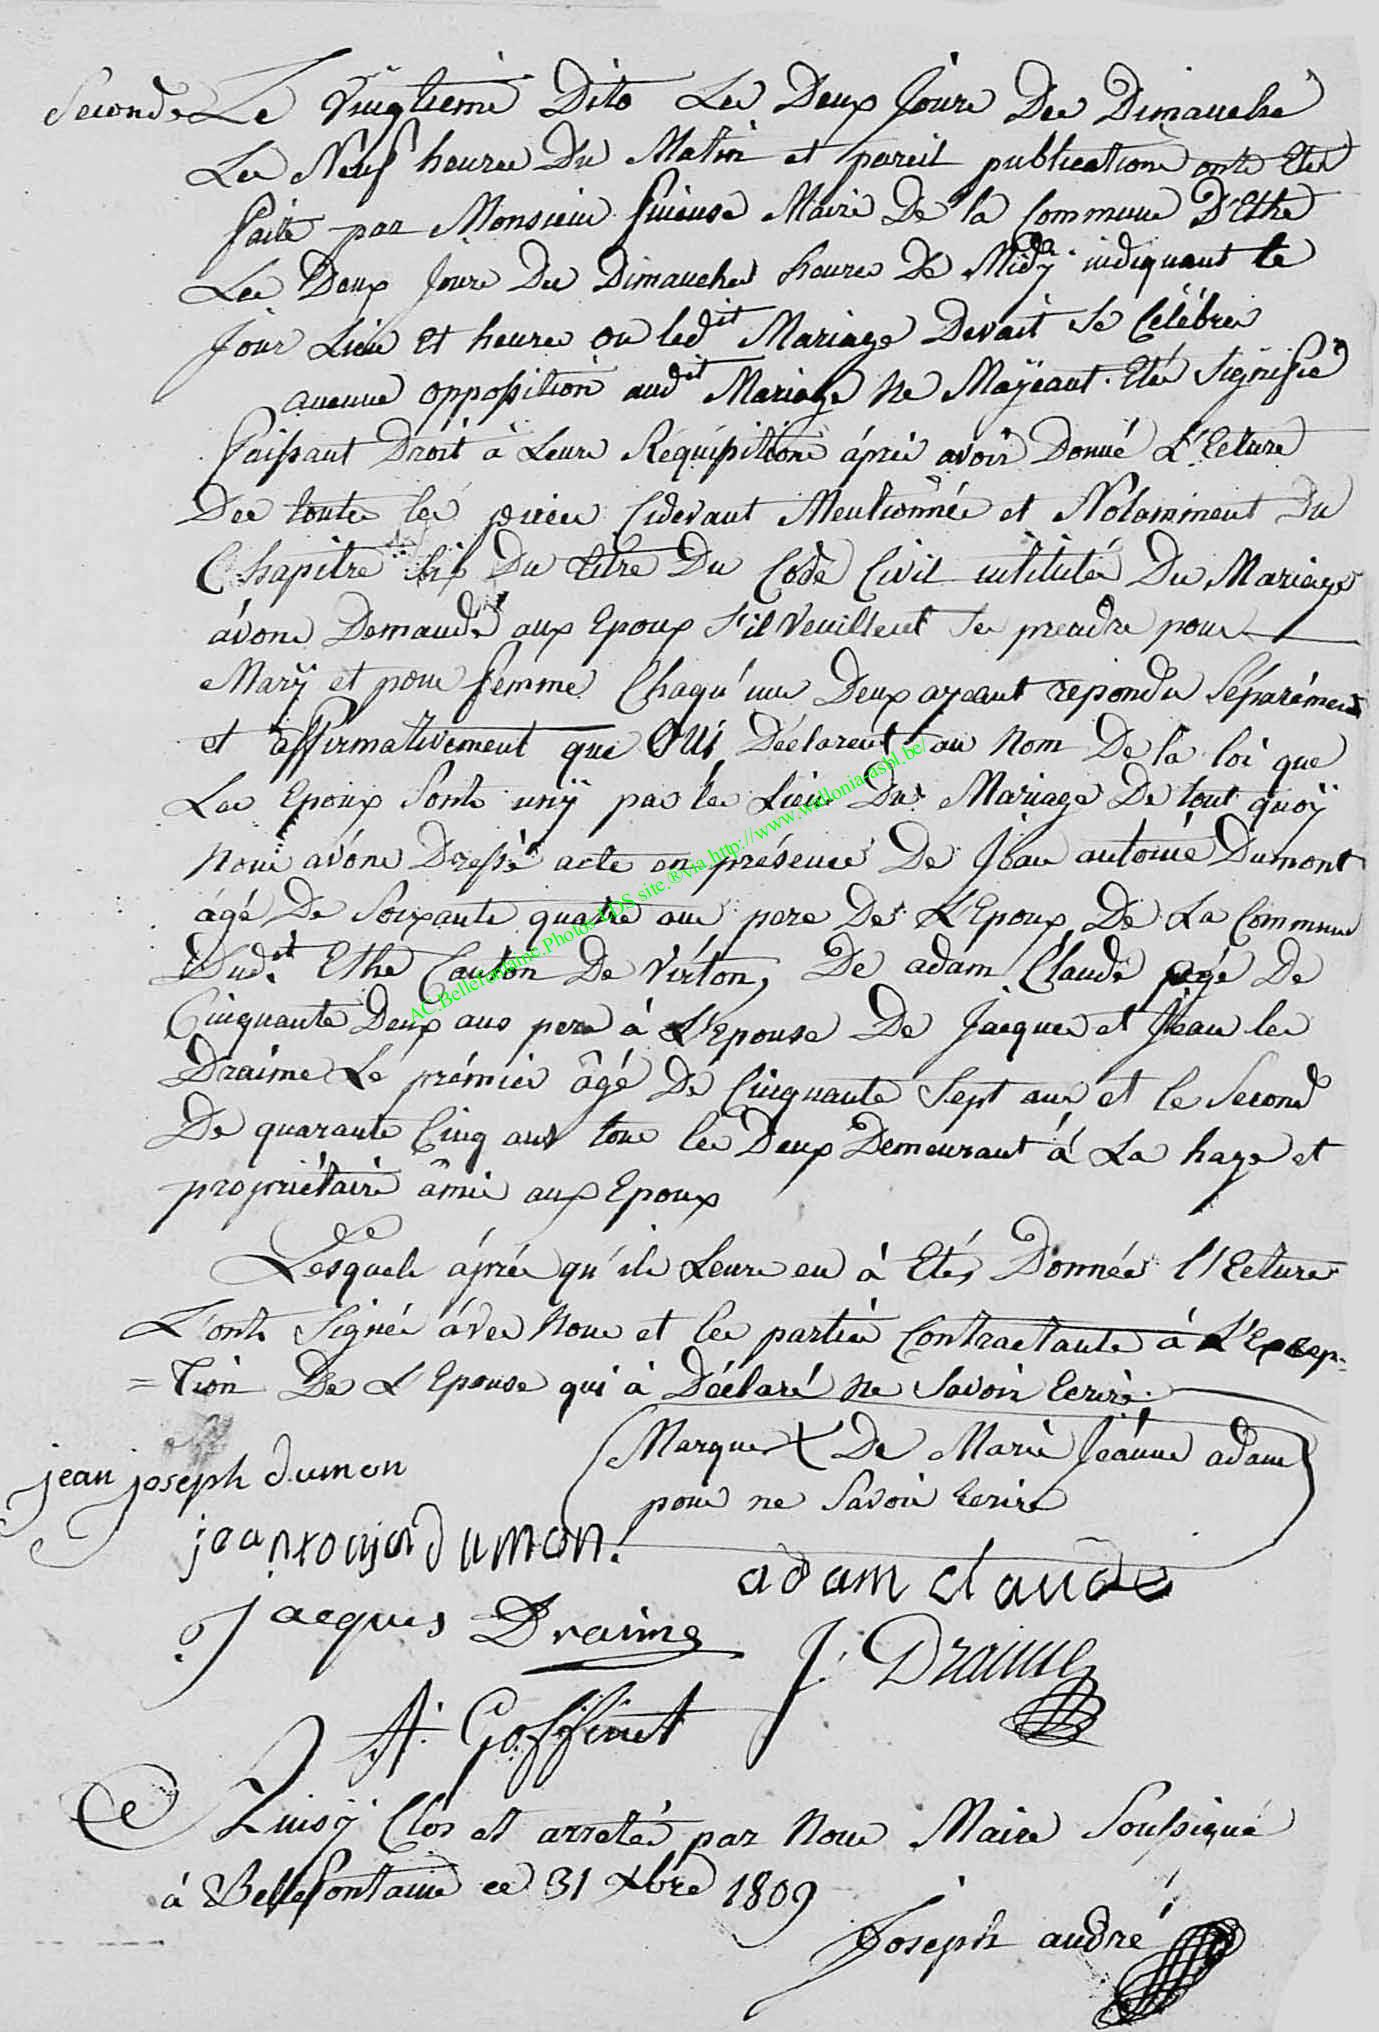 Seconde Le vingtieme Dito Les Deux Jours Des Dimanche
Les Neuf heures Du Matin et pareil publications onts Etes
faite par Monsieur Maire De la Commune D'Ethe
Les Deux Jours Des Dimanches heures De Midy indiquant le
Jour Lieu Et heures ou ledit Mariage Devait Se Célébrer
aucune opposition audit Mariage Ne Mayéant Etés Signifié
faissant Droit à Leurs Requisitions áprés avoir Donné L'Ecture
Des toutes les pieces Cidevant Mentionnées et Notamment Du
Chapitre six Du titre Du Code Civil intitulés Du Mariage
ávons Demandé aux Epoux S'il Veuillent Se prendre pour
Mary et pour femme Chaqu'un Deux ayeant repondu Séparément
et affirmativement que OUi Déclarent au Nom De la loi que
Les Epoux Sonts uny par les Liens Du Mariage De tout quoÿ
Nous avons Dressé acte en présence De Jean antoine Dumont
âgé De Soixante quatre ans pere De L'Epoux De La Commune
Dudit Ethe Canton De Virton, De adam Claude agé De
Cinquante Deux ans pere á L'Epouse De Jacques et Jean les
Draime Le prémier âgé De Cinquante Sept ans et le Second
De quarante Cinq ans tous les Deux Demeurant á La hage et
propriétaire âmis aux Epoux
Lesquels áprés qu'ils Leurs en à Etés Donnée l'Ecture
L'onts Signés ávec Nous et les parties Contractante á L'Excep=
=tion De L'Epouse qui à Déclaré Ne Savoir Ecrire.
Marque X De Marie Jeánne adam
pour ne Savoir Ecrire
jean joseph dumon
dumon.
adam claude
jacques Draime
J: Draime
A: Goffinet
Ainsÿ Clos et arretés par Nous Maire Soussigné
à Bellefontaine ce 31 xbre 1809
Joseph andré
AC.Bellefontaine.Photos LDS site.®via http://www.wallonia-asbl.be/